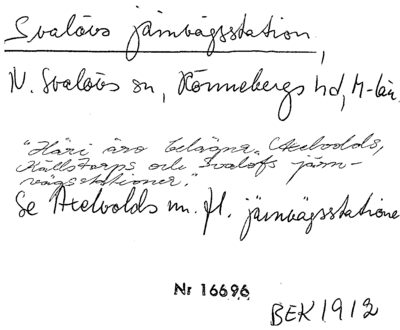 Svalövs järnvägsstation,
N. Svalövs sn, Rönnebergs hd, M-län.
"Häri äro belägna Axelvolds,
Källstorps och Svalöfs järn-
vägsstationer."
Se Axelvolds m. fl. järnvägsstatione
Nr 16696
BEK 1912